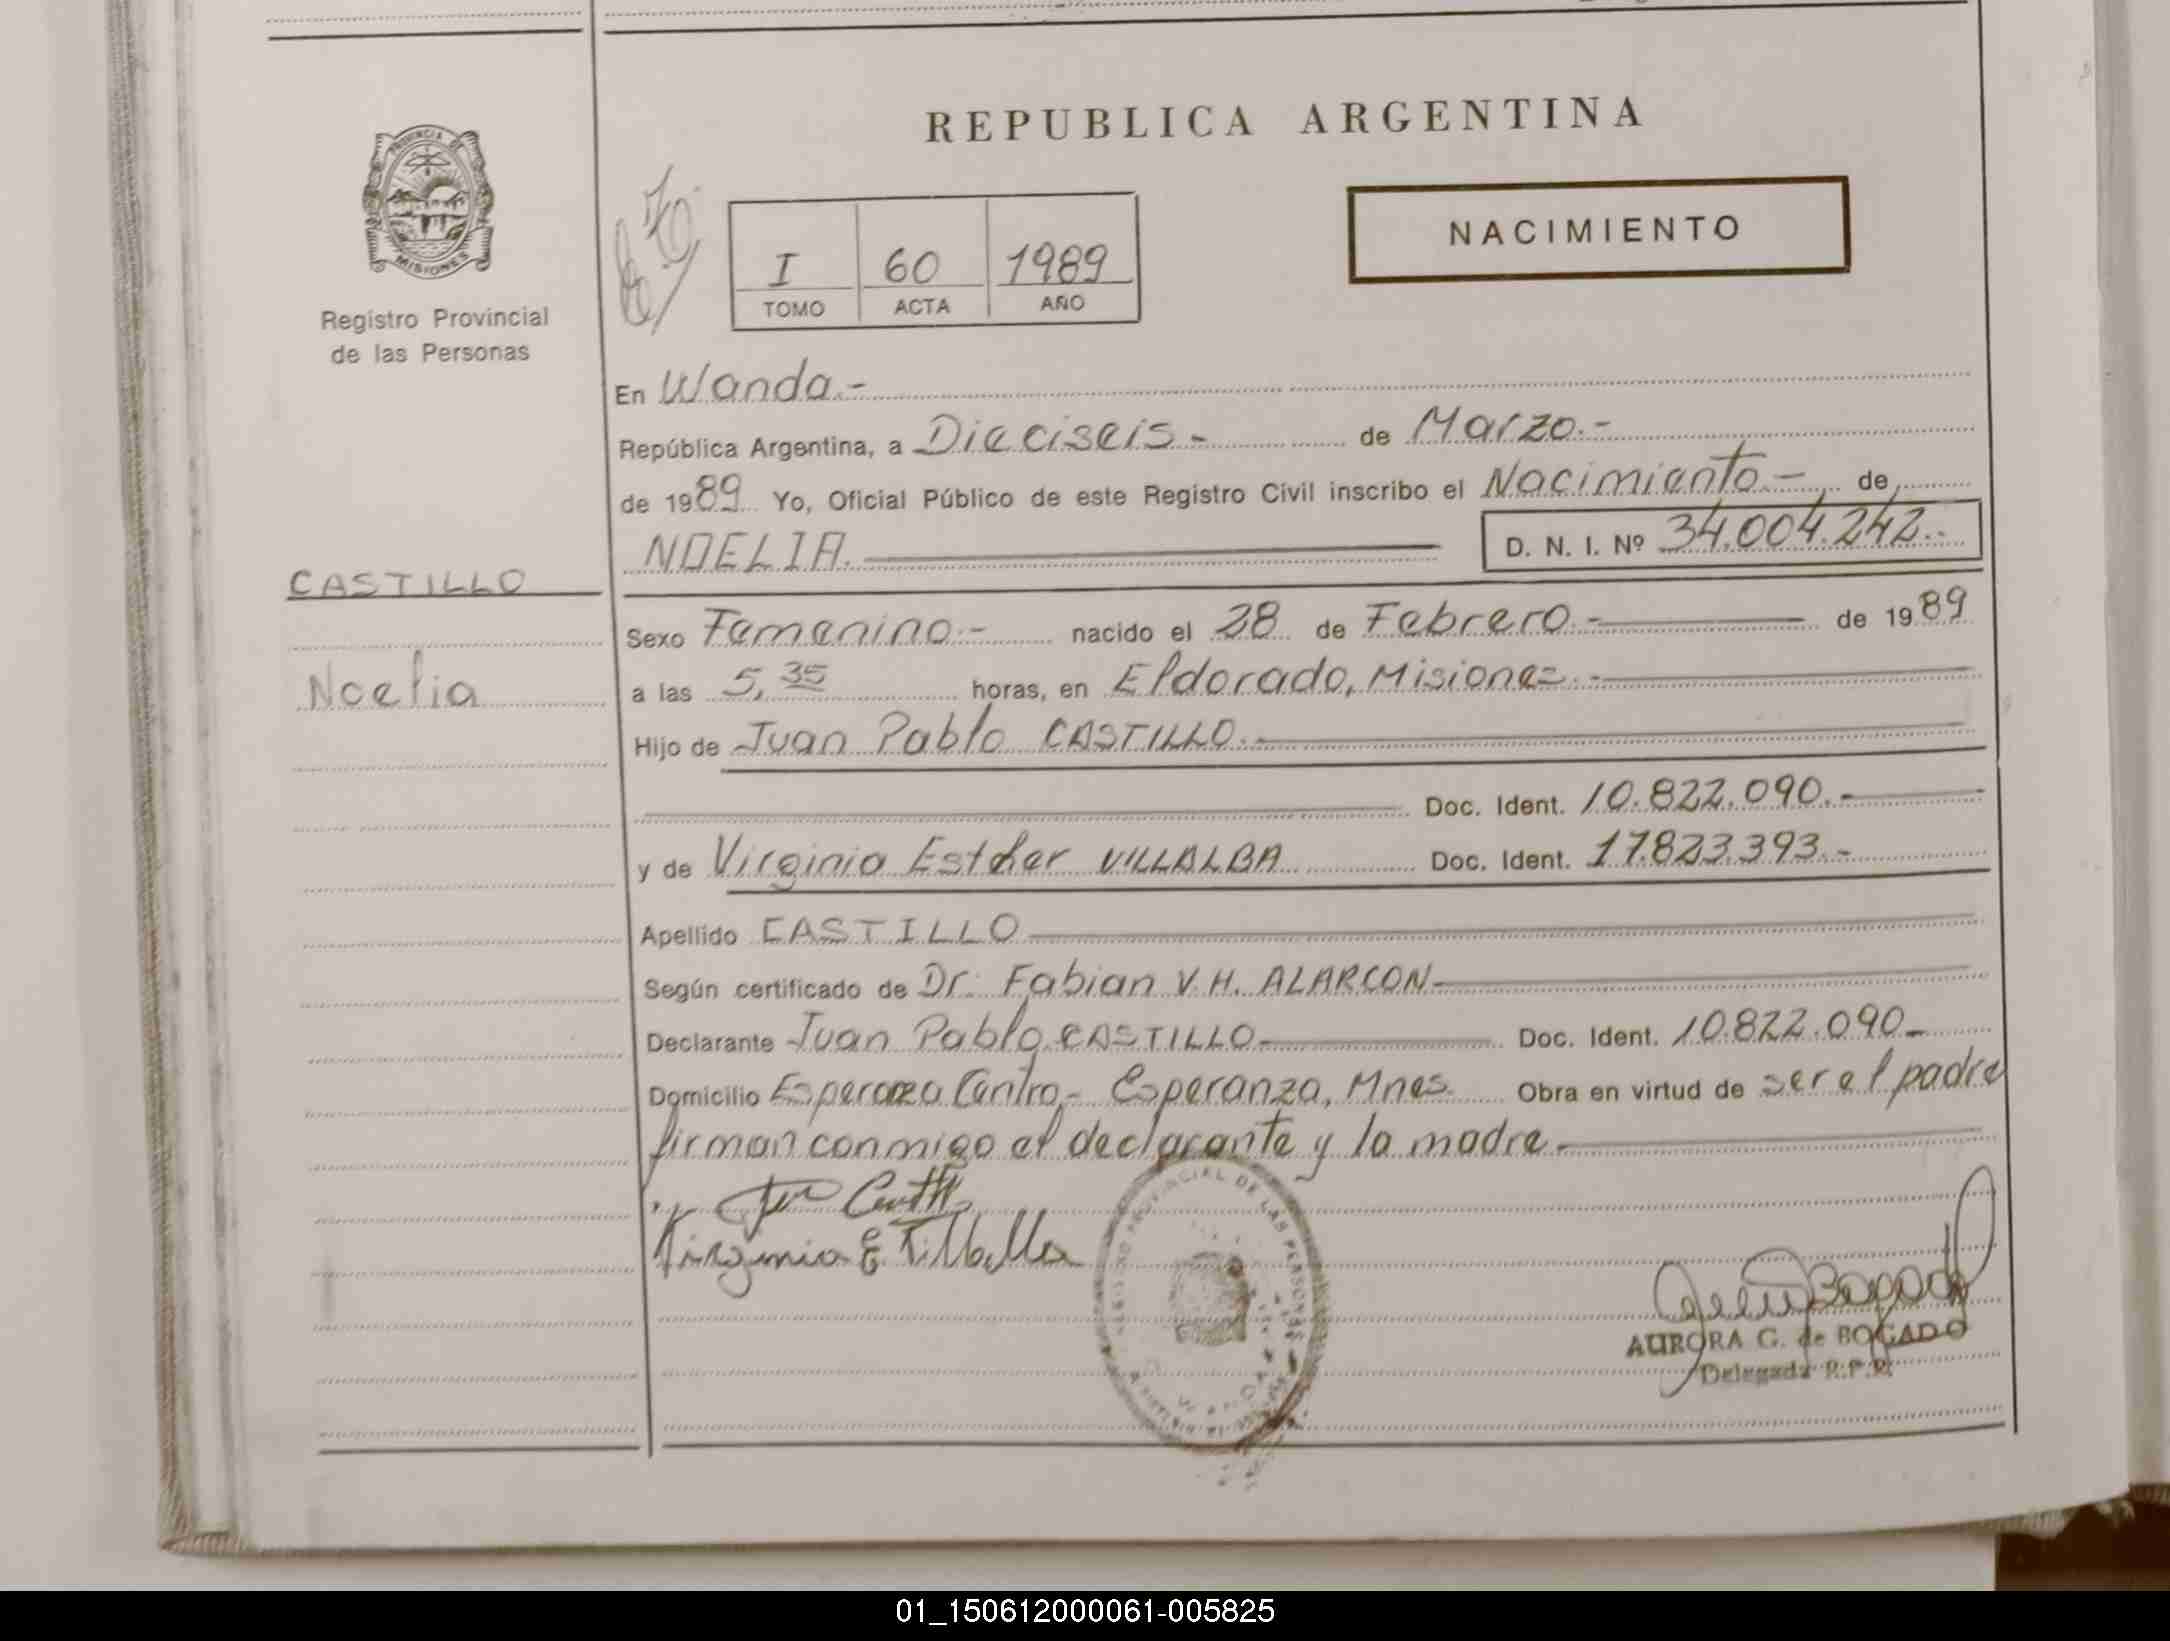 REPUBLICA ARGENTINA
PROVINCIA DE
MISIONES
Registro Provincial
de las Personas
NACIMIENTO
I 60 1989
TOMO ACTA AÑO
En Wanda.-
República Argentina, a Dieciseis - de Marzo.-
de 1989 Yo, Oficial Público de este Registro Civil inscribo el Nacimiento.- de
NOELIA. D. N. I. Nº 34.004.242.-
CASTILLO
Sexo Femenino.- nacido el 28 de Febrero.- de 1989
Noelia
a las 5,35 horas, en Eldorado, Misiones.-
Hijo de Juan Pablo CASTILLO.-
Doc. Ident. 10.822.090.-
y de Virginia Esther VILLALBA Doc. Ident. 17.823.393.-
Apellido CASTILLO
Según certificado de Dr. Fabian V.H. ALARCON
Declarante Juan Pablo CASTILLO Doc. Ident. 10.822.090-
Domicilio Esperanza Centro,- Esperanza, Mnes. Obra en virtud de ser el padre
firman conmigo el declarante y la madre.-
Virginia E Villalba
PROVINCIAL DE LAS PERSONAS
AURORA G. de BOGADO
Delegada R.P.P.
01_150612000061-005825